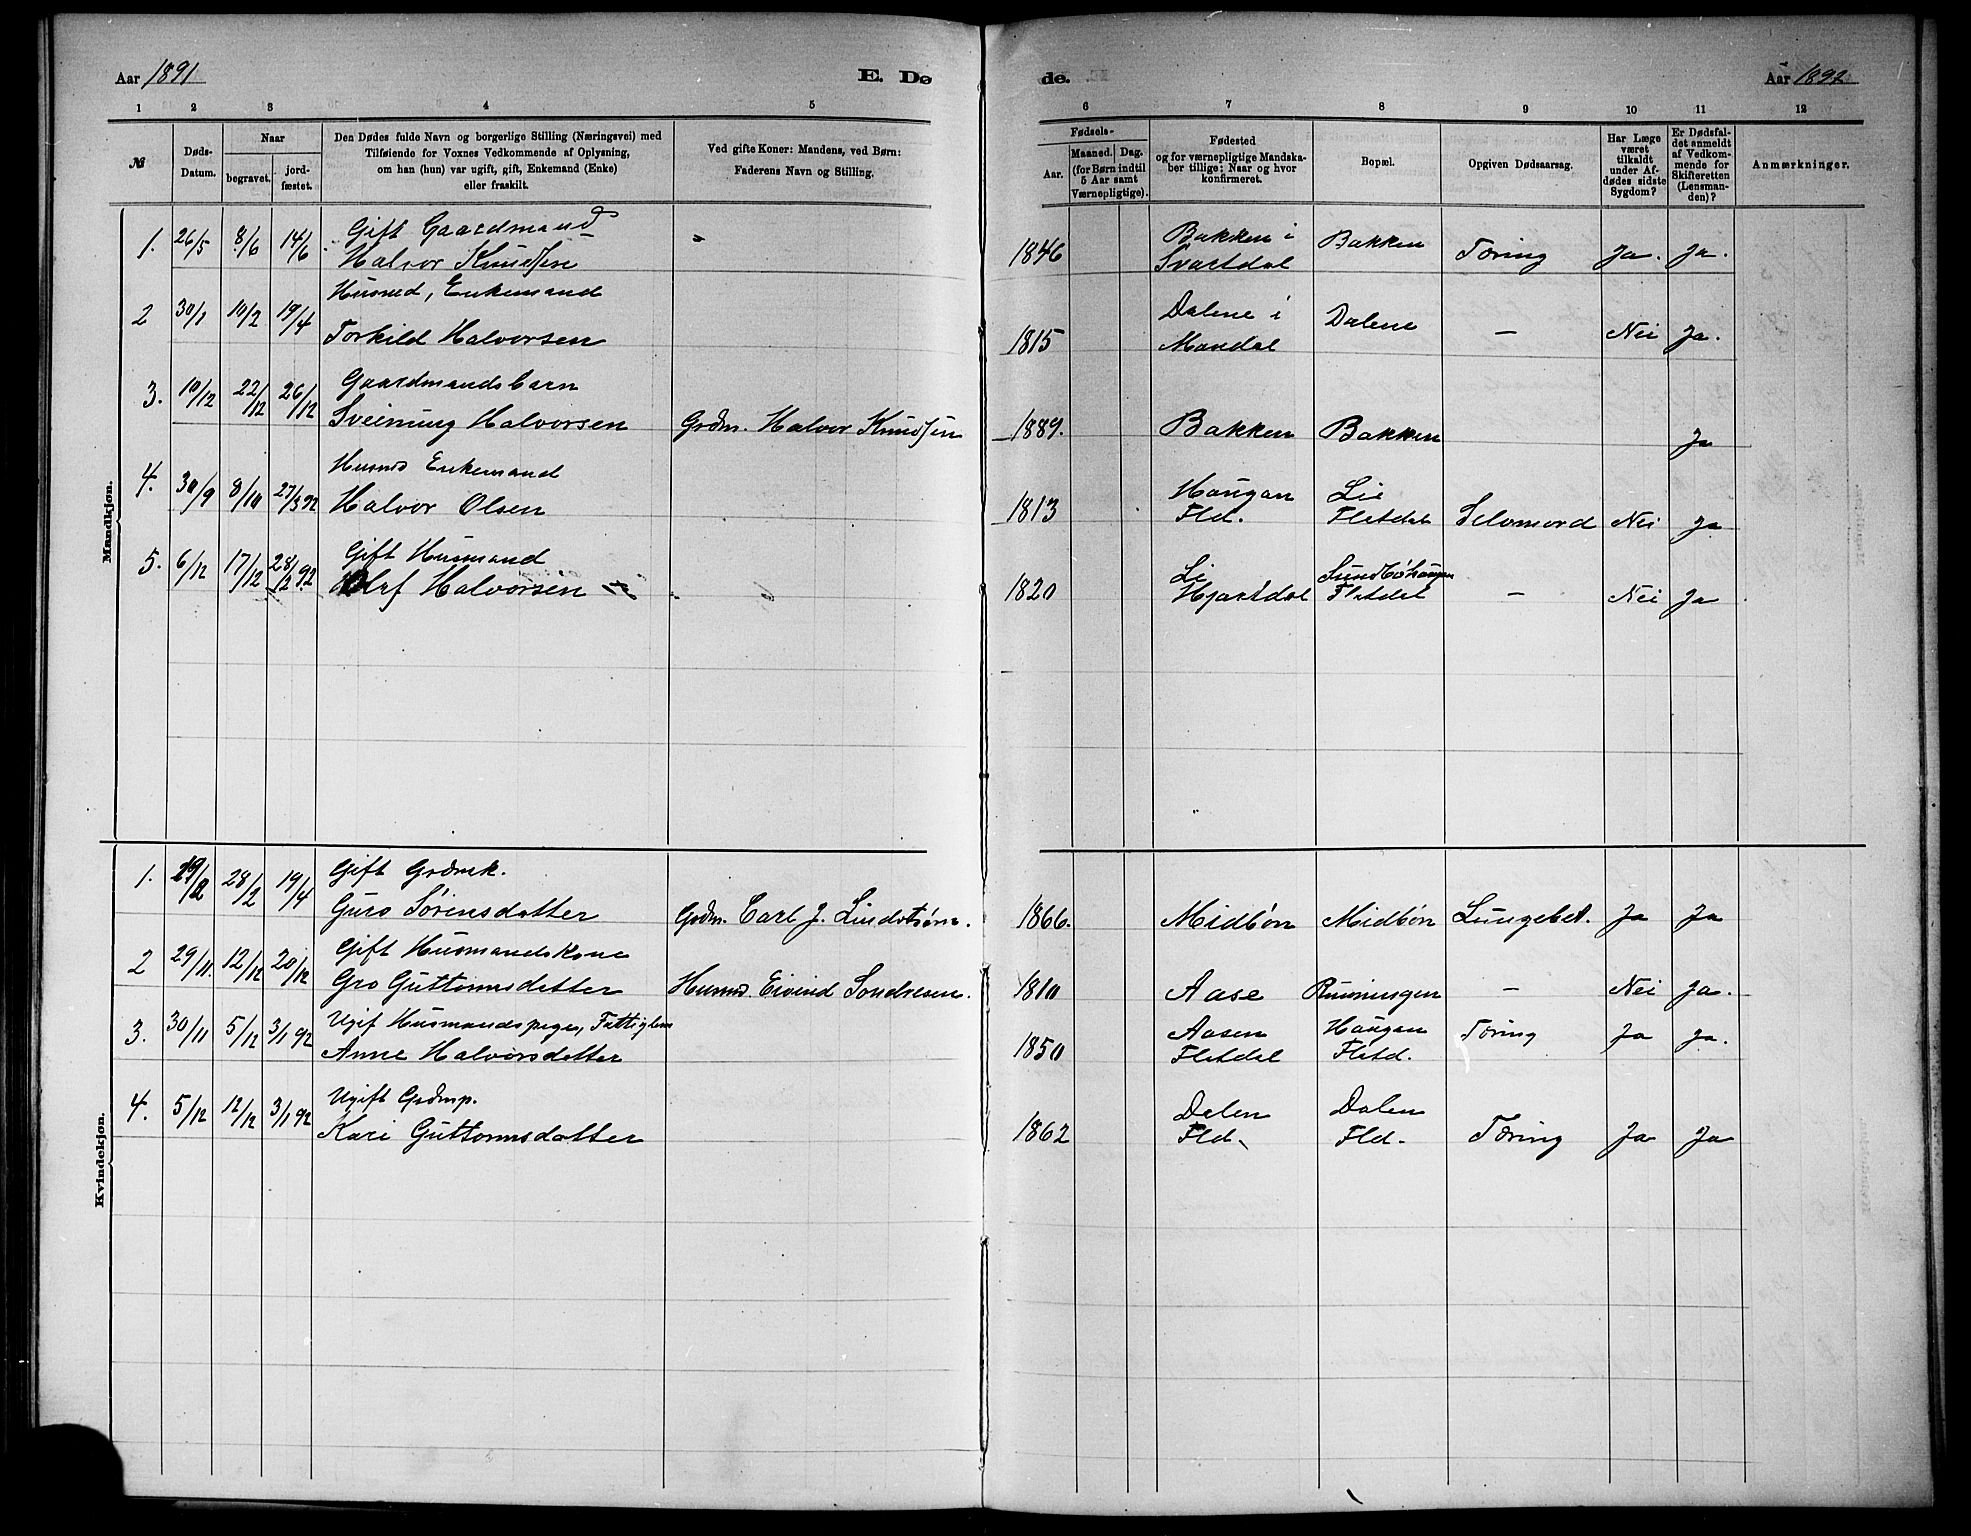 Aar 1891
E. Dø
de.
Aar 1892
1 2 3 4 5
6 7 8 9 10 11 12
№
Døds-
Datum.
Naar
begravet.
jord-
fæstet.
Den Dødes fulde Navn og borgerlige Stilling (Næringsvei) med
Tilføiende for Voxnes Vedkommende af Oplysning,
om han (hun) var ugift, gift, Enkemand (Enke)
eller fraskilt.
Ved gifte Koner: Mandens, ved Børn:
Faderens Navn og Stilling.
Fødsels-
Aar.
Maaned. Dag.
(for Børn indtil
5 Aar samt
Værnepligtige).
Fødested
og for værnepligtige Mandska-
ber tillige: Naar og hvor
konfirmeret.
Bopæl.
Opgiven Dødsaarsag.
Har Læge
været
tilkaldt
under Af-
dødes sidste
Sygdom?
Er Dødsfal-
det anmeldt
af Vedkom-
mende for
Skifteretten
(Lensman-
den)?
Anmærkninger.
Mandkjøn.
Gift Gaardmand Bakken i
1. 26/5 8/6 14/6 Halvor Knudsen 1846 Svartdal Bakken Tæring Ja. Ja.
Husmd, Enkemand Dalene i
2 30/1 10/2 19/4 Torkild Halvorsen 1815 Mandal Dalene — Nei Ja.
Gaardmandsbarn
3. 10/12 22/12 26/12 Sveinung Halvorsen Grdm. Halvor Knudsen 1889. Bakken Bakken Ja
Husmd Enkemand Haugan Lie
4. 30/9 8/10 27/3 92 Halvor Olsen 1813 Fld. Flatdal Selvmord Nei Ja
Gift Husmand Li Sundbøhaugen
5. 6/12 17/12 28/2 92 Olaf Halvorsen 1820 Hjartdal Flatdal — Nei Ja
Kvindekjøn.
Gift Grdmk.
1. 19/2 28/2 19/4 Guro Sørensdatter Grdm. Carl J. Lindstrøm. 1866. Midbøn Midbøn Lungebet. Ja Ja
Gift Husmandskone
2 29/11 12/12 20/12 Gro Guttormsdatter Husmd. Eivind Sondresen. 1810 Aase Runningen — Nei Ja.
Ugif Husmandspige, Fattiglem Aasen Haugan
3. 30/11 5/12 3/1 92 Anne Halvorsdatter 1850 Flatdal Flatd. Tæring Ja Ja.
Ugift Grdmp. Dalen Dalen
4. 5/12 12/12 3/1 92 Kari Guttormsdatter 1862 Fld. Fld. Tæring Ja Ja